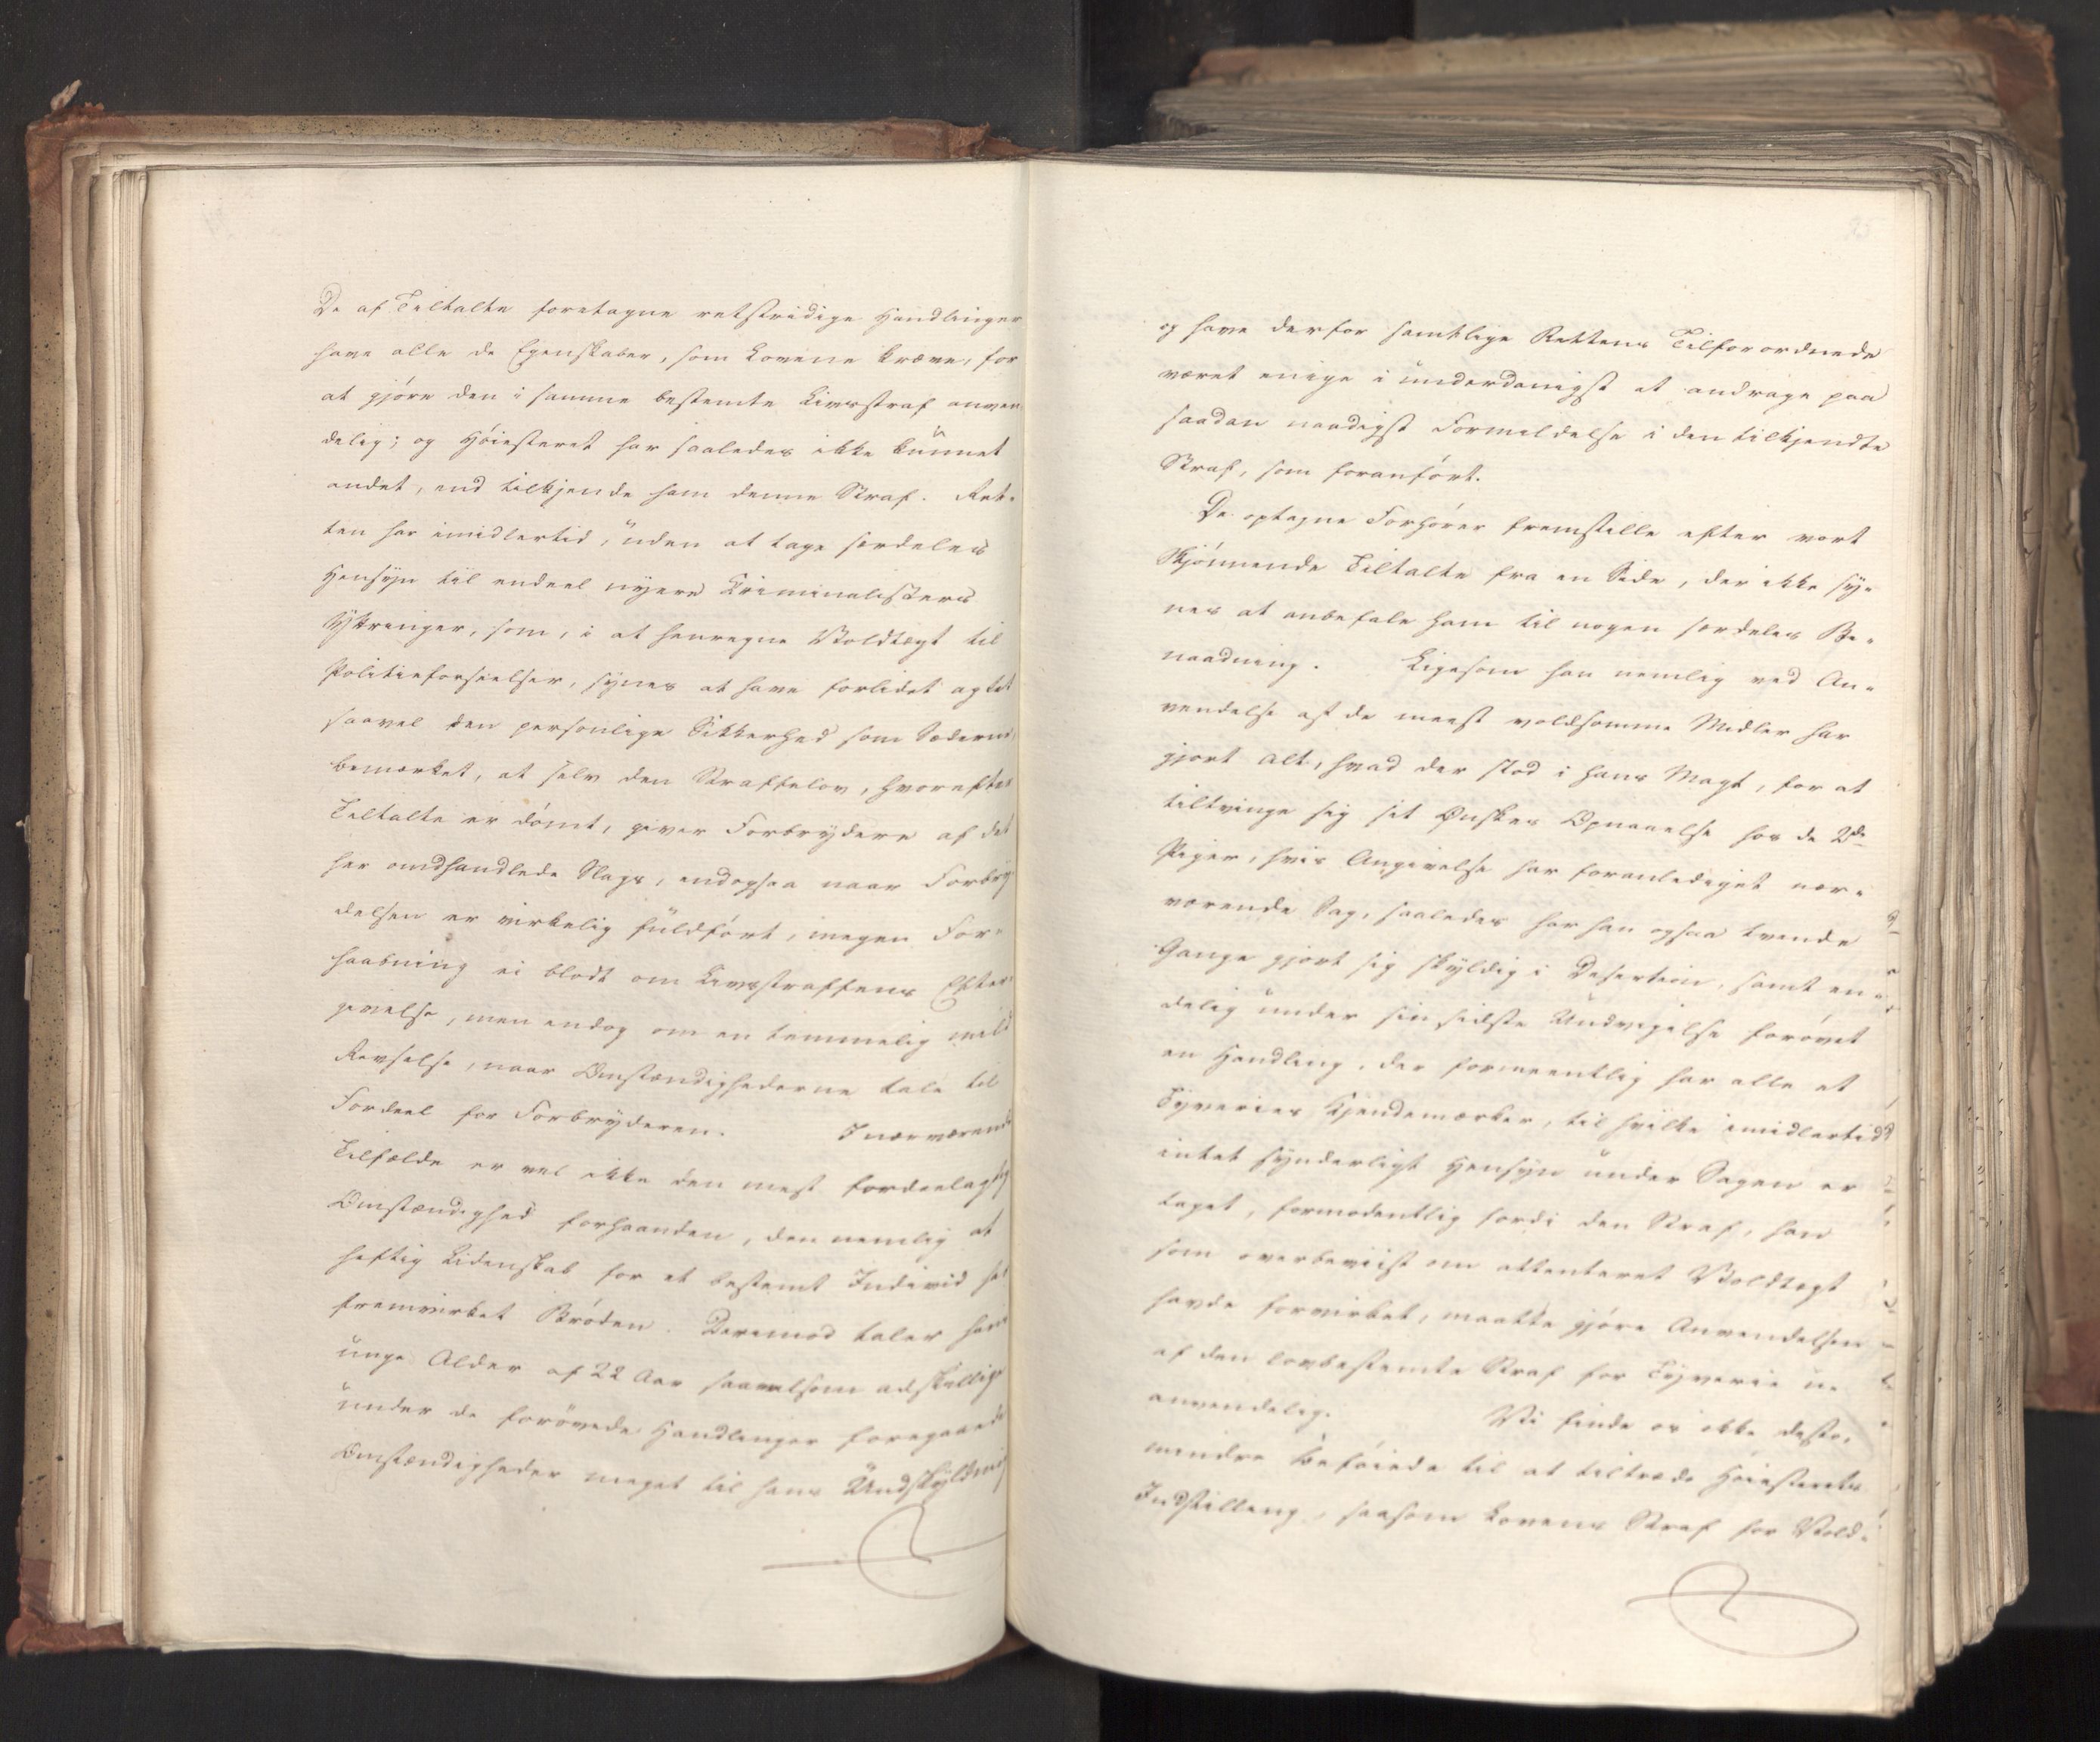 De af Tiltalte foretagne retstridige Handlinger
have alle de Egenskaber, som Lovene kræve, for
at gjöre den i samme bestemte Livsstraf anven-
delig; og Höiesteret har saaledes ikke kunnet
andet, end tilkjende ham denne Straf. Ret-
ten har imidlertid, uden at tage særdeles
Hensyn til endeel nyere Criminalisters
Yttringer, som, i at henregne Voldtægt til
Politieforseelser, synes at have forlidet agtet
saavel den personlige Sikkerhed som Sæderne,
bemærket, at selv den Straffelov, hvorefter
Tiltalte er dömt, giver Forbrydere af det
her omhandlede Slags, endogsaa naar Forbry-
delsen er virkelig fuldfört, megen For-
haabning ei blodt om Livsstraffens Efter-
givelse, men endog om en temmelig mild
Revselse, naar Omstændighederne tale til
Fordeel for Forbryderen. I nærværende
Tilfælde er vel ikke den mest fordeelagtig
Omstændighed forhaanden, den nemlig at
heftig Lidenskab for et bestemt Individ
fremvirket Bröden. Derimod taler hans
unge Alder af 22 Aar saavelsom adskillige
under de forövede Handlinger foregaaede
Omstændigheder meget til hans Undskyldning
og have derfor samtlige Rettens Tilforordnede
været enige i underdanigst at andrage paa
saadan naadigst Formildelse i den tilkjendte
Straf, som foranfört.
De optagne Forhörer fremstille efter vort
Skjönnende Tiltalte fra en Side, der ikke sy-
nes at anbefale ham til nogen særdeles Be-
naadning. Ligesom han nemlig ved An-
vendelse af de meest voldsomme Midler har
gjort alt, hvad der stod i hans Magt, for at
tiltvinge sig sit Önskes Opnaaelse hos de 2de
Piger, hvis Angivelse har foranlediget nær-
værende Sag, saaledes har han ogsaa tvende
Gange gjort sig skyldig i Desertion, samt en-
delig under sin sidste Undvigelse forövet
en Handling, der formeentlig har alle et
Tyveries Kjendemærker, til hvilke imidlertid
intet synderligt Hensyn under Sagen er
taget, formodentlig fordi den Straf, han
som overbeviist om attenteret Voldtægt
havde forvirket, maatte gjöre Anvendelsen
af den lovbestemte Straf for Tyverie u-
anvendelig. Vi finde os ikke desto-
mindre beföiede til at tiltræde Höiesterets
Indstilling, saasom Lovens Straf for Vold-